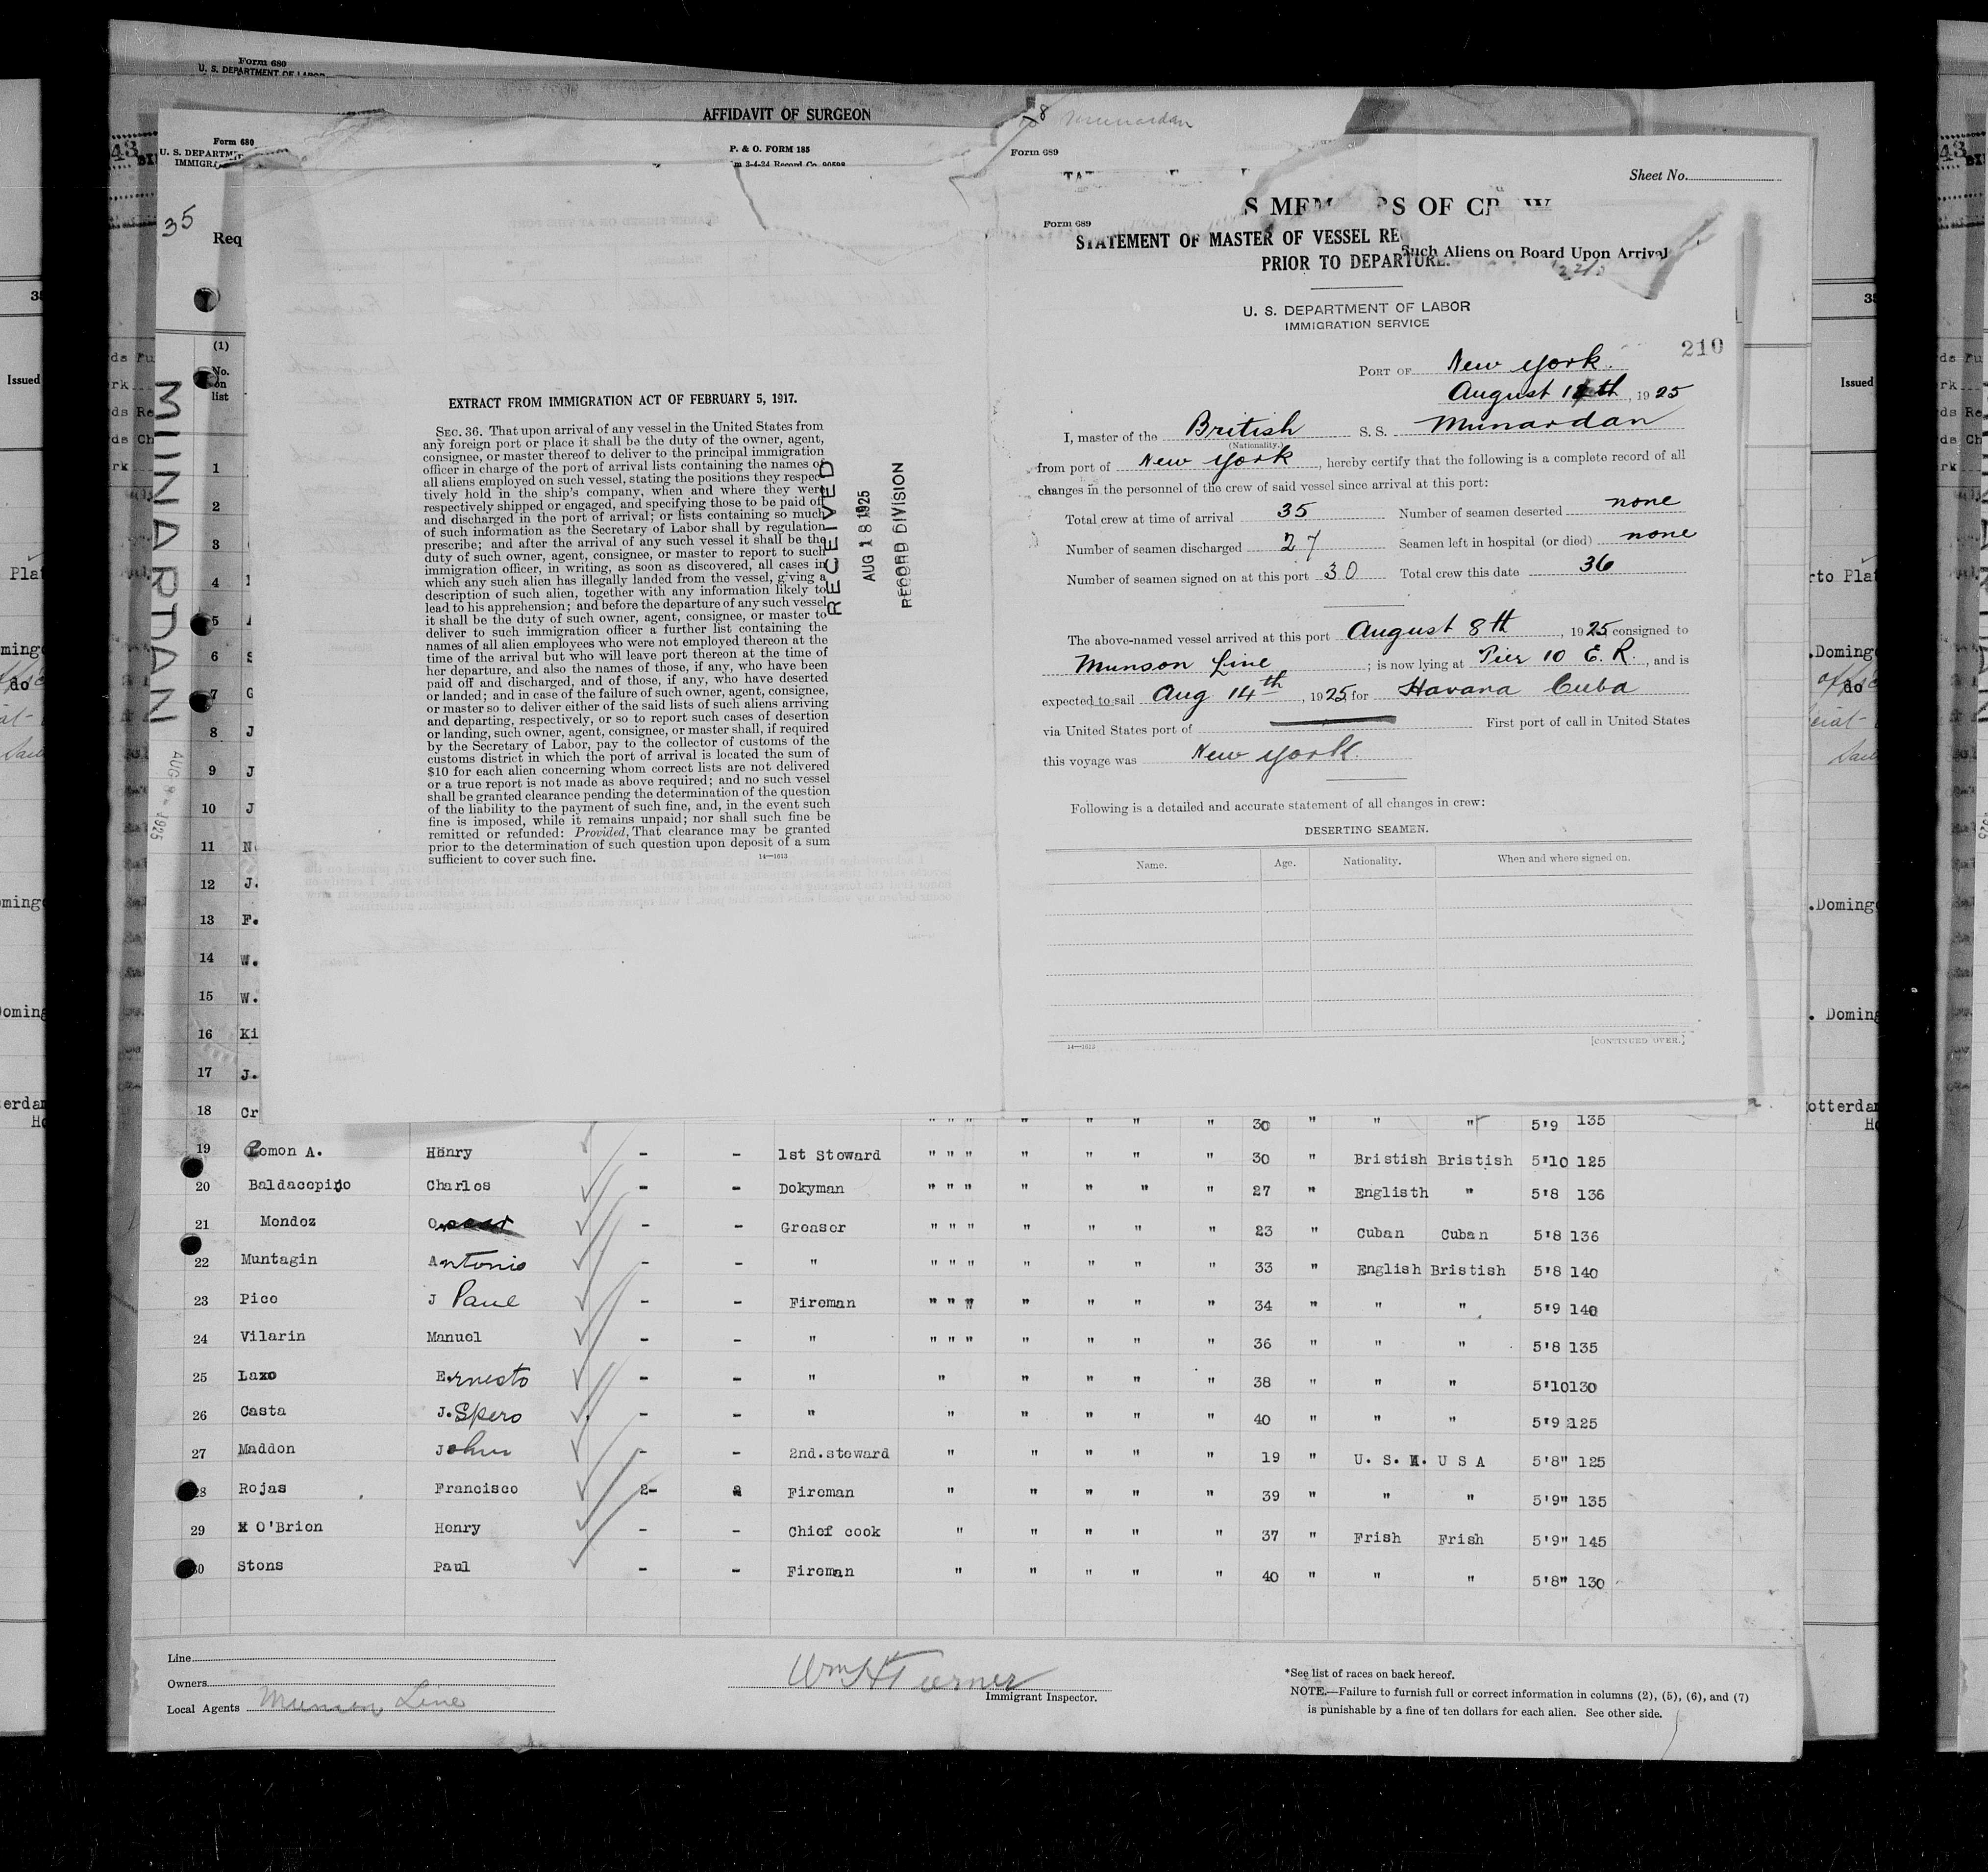 Form 680
U. S. DEPARTMENT OF LABOR
AFFIDAVIT OF SURGEON
Form 680
U. S. DEPARTM
IMMIGR
P. & O. FORM 185
m 3-4-24 Record Co. 90598
8 Munardan
35
Req
(1)
No. on list
MUNARDAN
AUG 1925
EXTRACT FROM IMMIGRATION ACT OF FEBRUARY 5, 1917.
SEC. 36. That upon arrival of any vessel in the United States from
any foreign port or place it shall be the duty of the owner, agent,
consignee, or master thereof to deliver to the principal immigration
officer in charge of the port of arrival lists containing the names of
all aliens employed on such vessel, stating the positions they respec-
tively hold in the ship's company, when and where they were
respectively shipped or engaged, and specifying those to be paid off
and discharged in the port of arrival; or lists containing so much
of such information as the Secretary of Labor shall by regulation
prescribe; and after the arrival of any such vessel it shall be the
duty of such owner, agent, consignee, or master to report to such
immigration officer, in writing, as soon as discovered, all cases in
which any such alien has illegally landed from the vessel, giving a
description of such alien, together with any information likely to
lead to his apprehension; and before the departure of any such vessel
it shall be the duty of such owner, agent, consignee, or master to
deliver to such immigration officer a further list containing the
names of all alien employees who were not employed thereon at the
time of the arrival but who will leave port thereon at the time of
her departure, and also the names of those, if any, who have been
paid off and discharged, and of those, if any, who have deserted
or landed; and in case of the failure of such owner, agent, consignee,
or master so to deliver either of the said lists of such aliens arriving
and departing, respectively, or so to report such cases of desertion
or landing, such owner, agent, consignee, or master shall, if required
by the Secretary of Labor, pay to the collector of customs of the
customs district in which the port of arrival is located the sum of
$10 for each alien concerning whom correct lists are not delivered
or a true report is not made as above required; and no such vessel
shall be granted clearance pending the determination of the question
of the liability to the payment of such fine, and, in the event such
fine is imposed, while it remains unpaid; nor shall such fine be
remitted or refunded: Provided, That clearance may be granted
prior to the determination of such question upon deposit of a sum
sufficient to cover such fine.
14—1613
RECEIVED
AUG 18 1925
RECORD DIVISION
Form 689
Sheet No.
S MEM RS OF CR W
Form 689
STATEMENT OF MASTER OF VESSEL RE
Such Aliens on Board Upon Arrival
PRIOR TO DEPARTURE.
U. S. DEPARTMENT OF LABOR
IMMIGRATION SERVICE
210
PORT OF New York.
August 14th, 1925
I, master of the British S. S. Munardan
(Nationality.)
from port of New York, hereby certify that the following is a complete record of all
changes in the personnel of the crew of said vessel since arrival at this port:
Total crew at time of arrival 35 Number of seamen deserted none
Number of seamen discharged 27 Seamen left in hospital (or died) none
Number of seamen signed on at this port 30 Total crew this date 36
The above-named vessel arrived at this port August 8th, 1925, consigned to
Munson Line; is now lying at Pier 10 E. R., and is
expected to sail Aug 14th, 1925, for Havana Cuba
via United States port of First port of call in United States
this voyage was New York.
Following is a detailed and accurate statement of all changes in crew:
DESERTING SEAMEN.
Name. Age. Nationality. When and where signed on.
14—1613
[CONTINUED OVER.]
1
2
3
4
5
6 S
7 G
8 J
9 J
10 J
11 N
12 J.
13 F.
14 W.
15 W.
16 Ki
17 J.
18 Cr " " " " " " " 30 " " " 5'9 135
19 Lomon A. Henry - - 1st Steward " " " " " " " 30 " Bristish Bristish 5'10 125
20 Baldacopino Charles - - Dokyman " " " " " " " 27 " Englisth " 5'8 136
21 Mendoz - - Greaser " " " " " " " 23 " Cuban Cuban 5'8 136
22 Muntagin Antonio - - " " " " " " " " 33 " English Bristish 5'8 140
23 Pico J Paul - - Fireman " " " " " " " 34 " " " 5'9 140
24 Vilarin Manuel - - " " " " " " " " 36 " " " 5'8 135
25 Laxo Ernesto - - " " " " " " 38 " " " 5'10 130
26 Casta J. Spero - - " " " " " " 40 " " " 5'9 125
27 Maddon John - - 2nd.steward " " " " " 19 " U. S. A. U S A 5'8" 125
28 Rojas Francisco 2- Fireman " " " " " 39 " " " 5'9" 135
29 O'Brien Henry - - Chief cook " " " " " 37 " Frish Frish 5'9" 145
30 Stons Paul - - Fireman " " " " " 40 " " " 5'8" 130
Line
Owners
Local Agents Munson Line
Wm H Turner
Immigrant Inspector.
*See list of races on back hereof.
NOTE.—Failure to furnish full or correct information in columns (2), (5), (6), and (7)
is punishable by a fine of ten dollars for each alien. See other side.